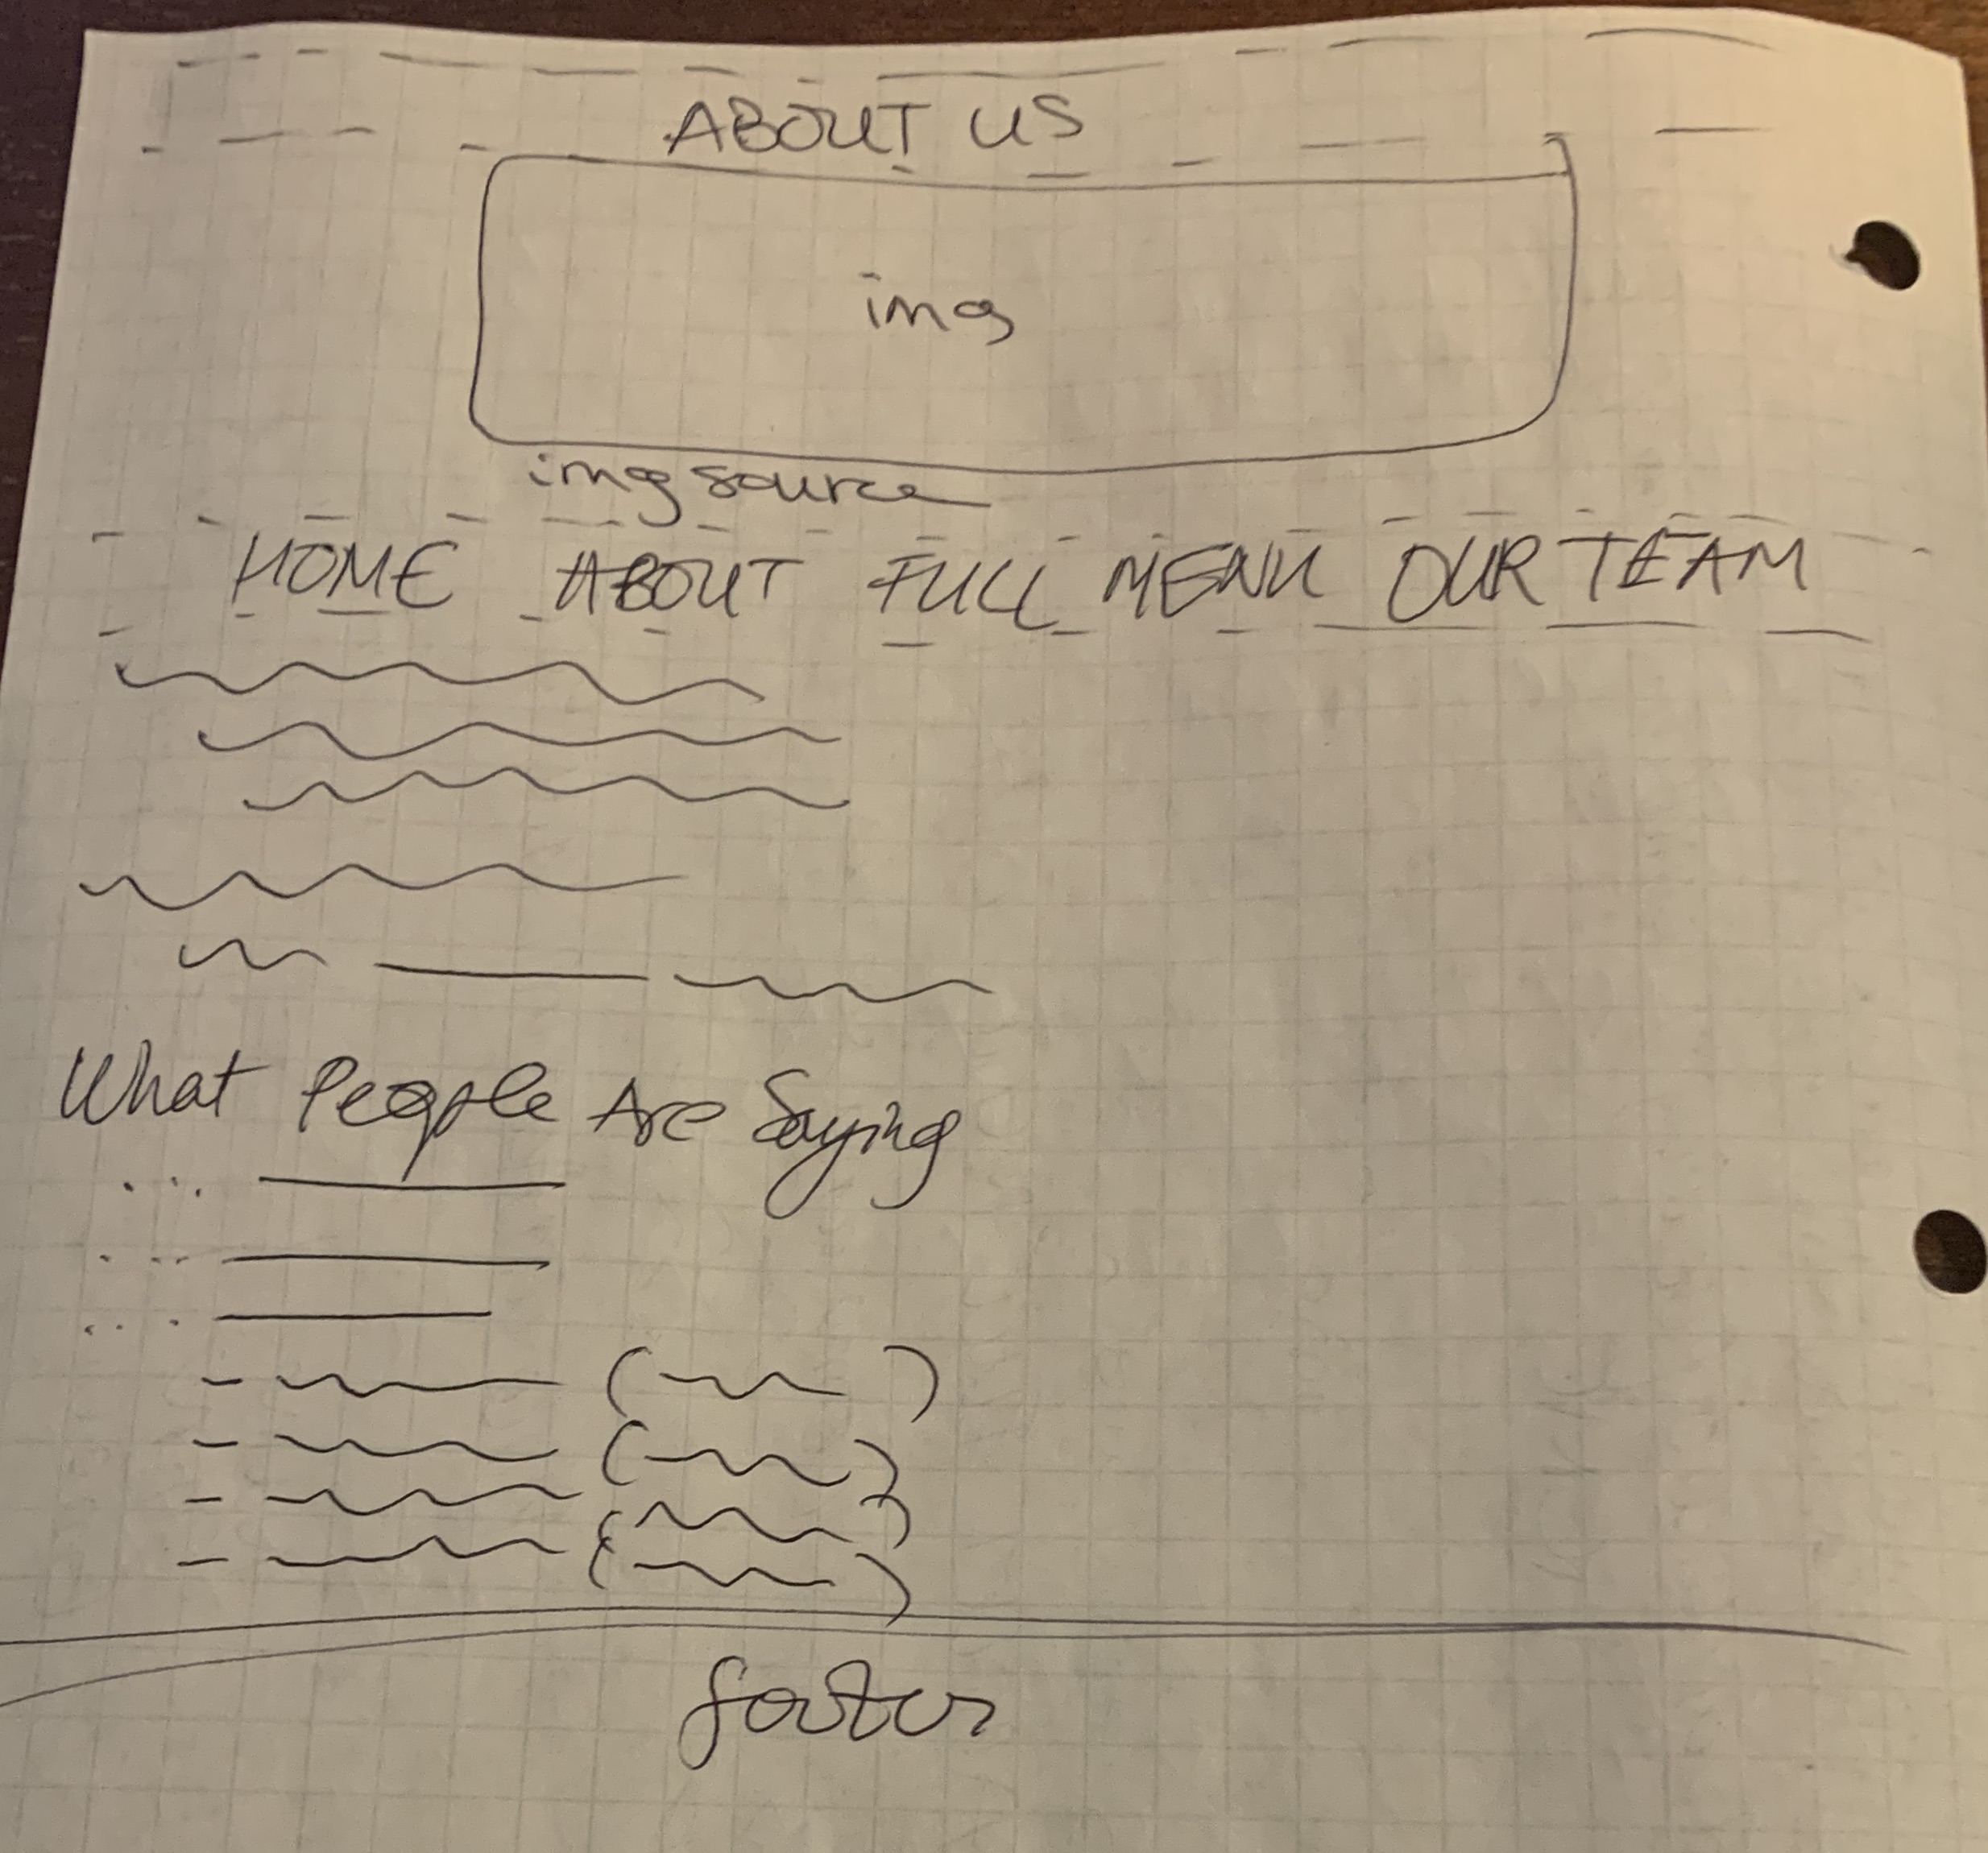 ABOUT US
img
img source
HOME ABOUT FULL MENU OUR TEAM
What People Are Saying
footer